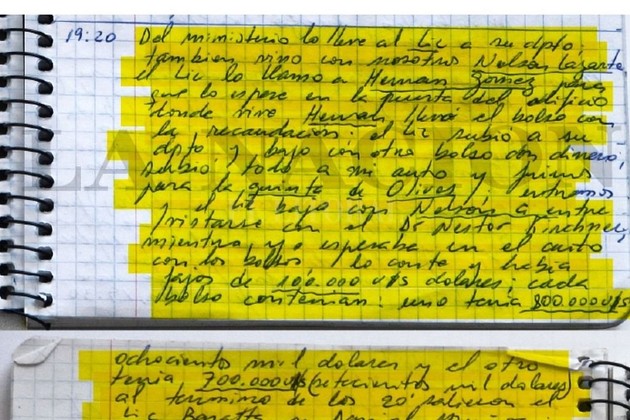 19:20 Del ministerio lo lleve al Lic a su dpto,
tambien vino con nosotros Nelson Lazarte
el Lic lo llamo a Hernan Gomez para
que lo espere en la puerta del edificio
donde vive Hernan llevó el bolso con
la recaudación: el Lic subio a su
dpto y bajo con otro bolso con dinero,
subió todo a mi auto y fuimos
para la quinta de Olivos, entramos
y el Lic bajo con Nelson a entre
vistarse con el Dr Nestor Kirchner,
mientras yo esperaba en el auto
con los bolsos, lo conte y habia
fajos de 100.000 U$S dolares; cada
bolso contenian: uno tenia 800.000 U$S
ochocientos mil dolares y el otro
tenia 700.000 U$S (setecientos mil dolares)
al termino de los 20' salieron el
Lic Baratta
LA NACION